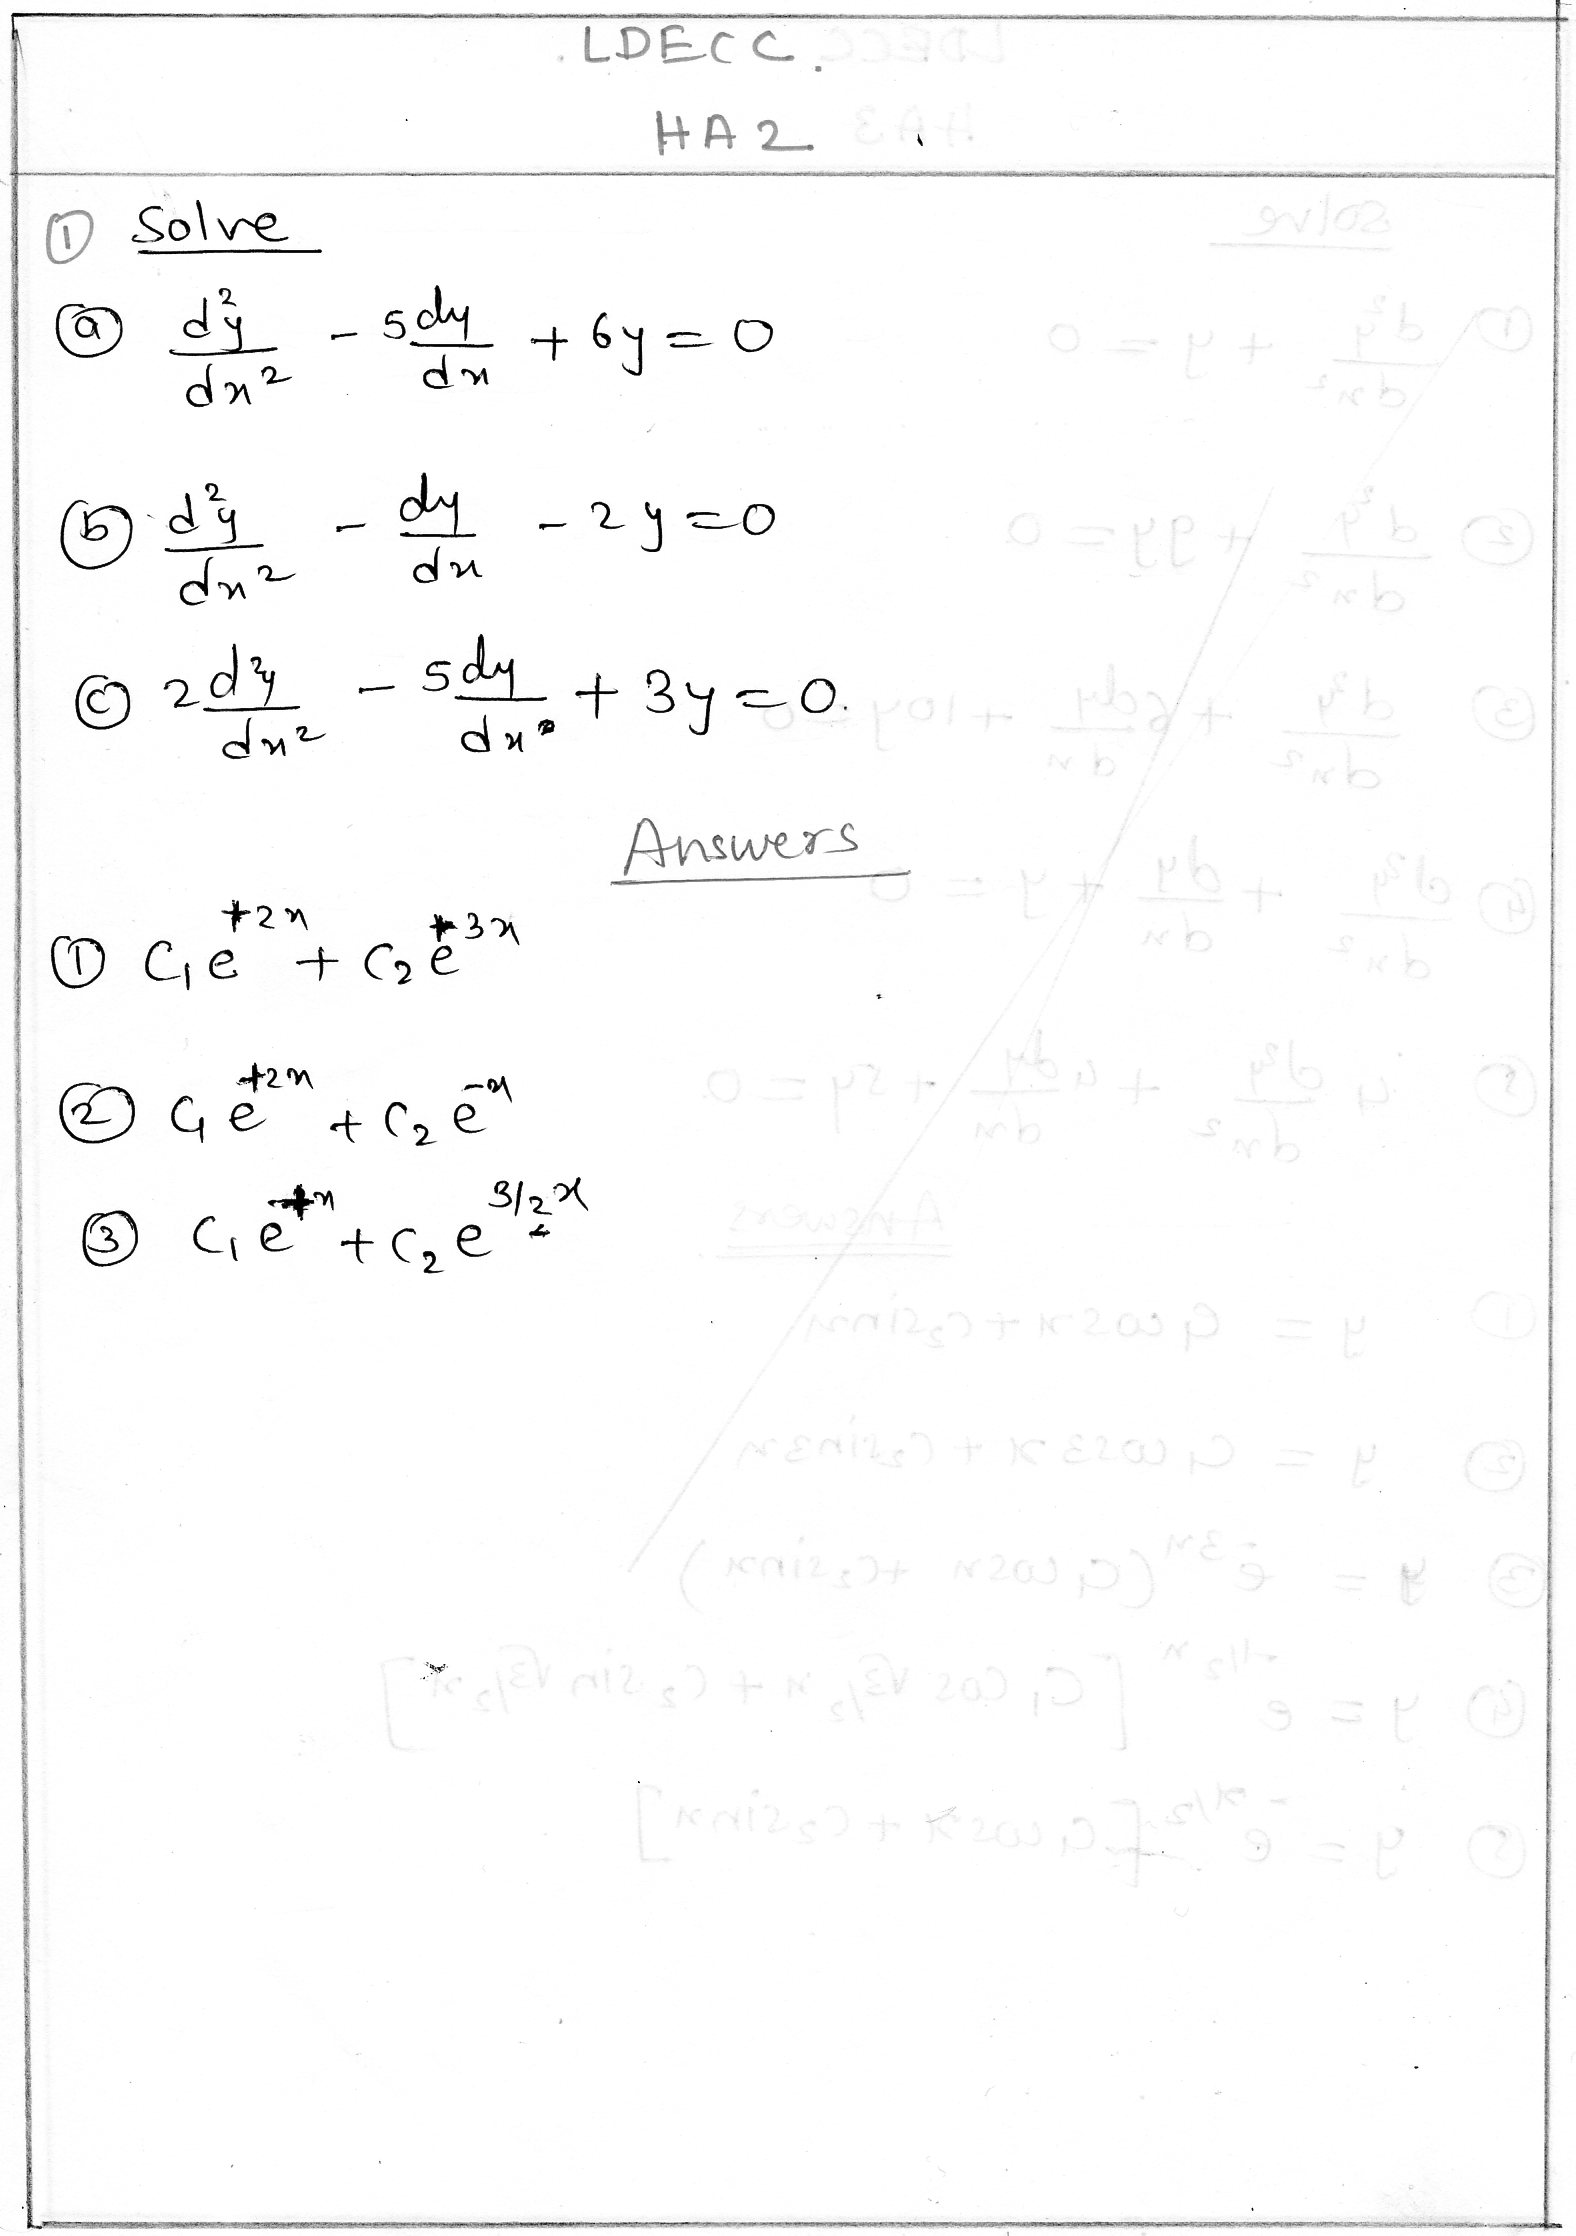 LDECC.
HA2.
① Solve
ⓐ d²y/dx² - 5dy/dx + 6y = 0
ⓑ d²y/dx² - dy/dx - 2y = 0
ⓒ 2d²y/dx² - 5dy/dx + 3y = 0.
Answers
① C₁e^+2x + C₂e^+3x
② C₁e^+2x + C₂e^-x
③ C₁e^+x + C₂e^3/2x